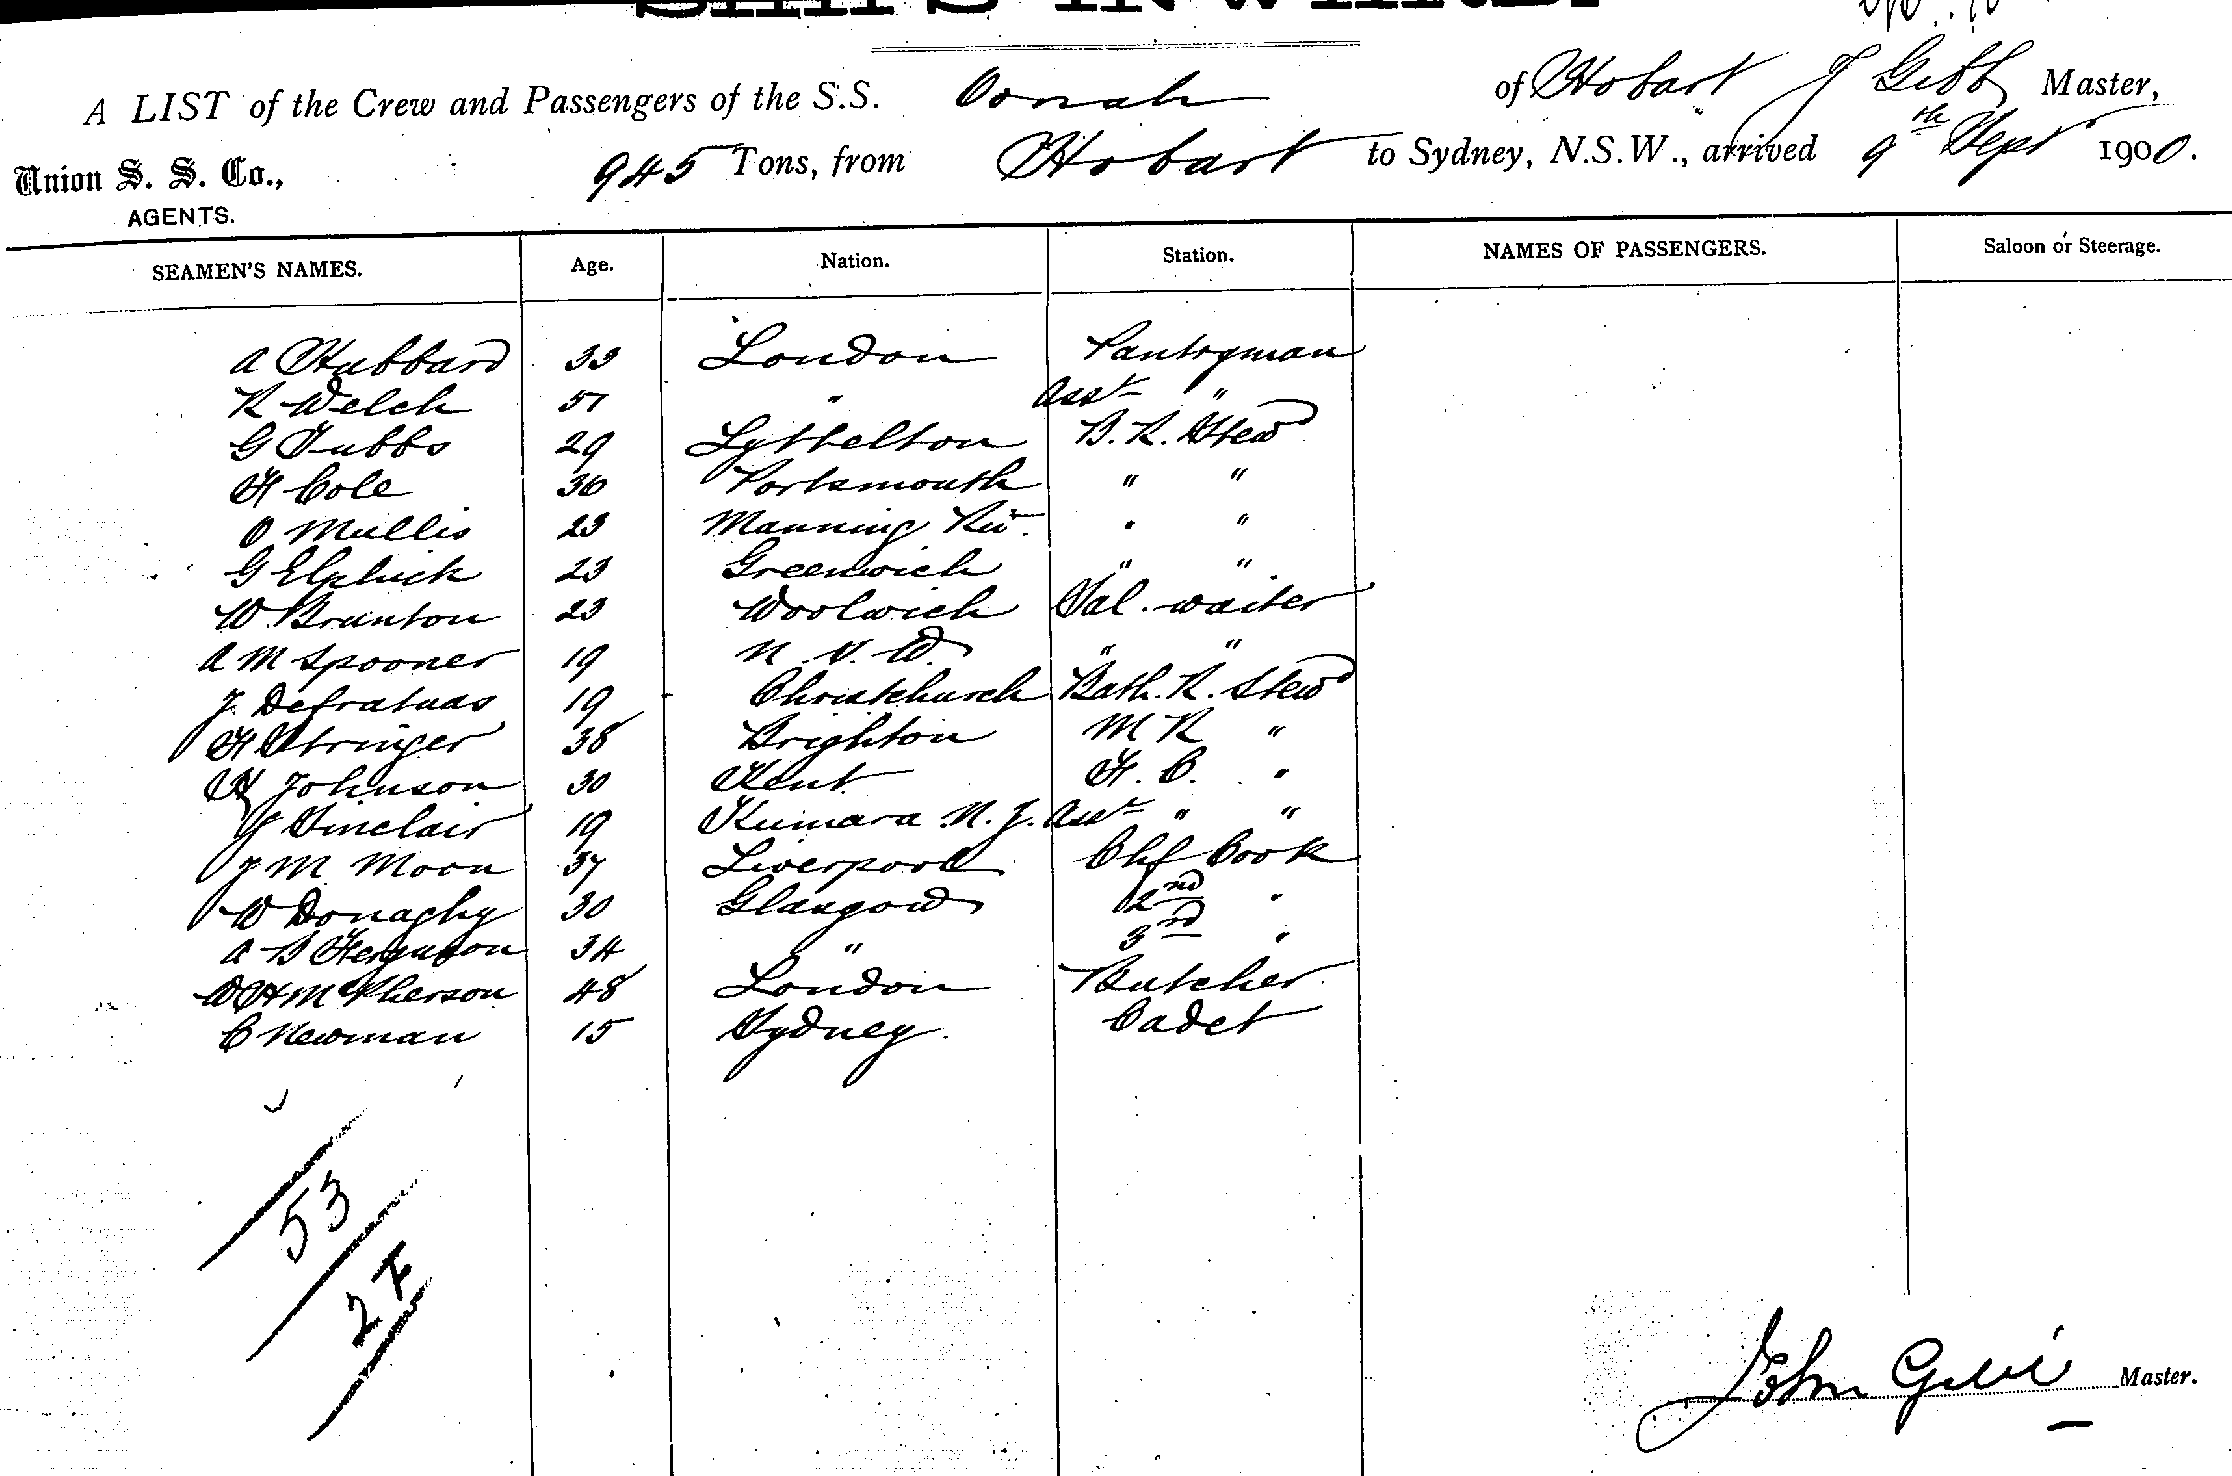 SHIPS INWARD.
A LIST of the Crew and Passengers of the S.S. Oonah of Hobart J Gibb Master,
Union S. S. Co., 945 Tons, from Hobart to Sydney, N.S.W., arrived 9th Sept 1900.
AGENTS.
SEAMEN'S NAMES. Age. Nation. Station. NAMES OF PASSENGERS. Saloon or Steerage.
A Hubbard 33 London Pantryman
R Welch 51 " Asst "
G Tubbs 29 Lyttelton B. R. Stewd
H Cole 36 Portsmouth " "
O Mullis 23 Manning Riv. " "
G Elphick 23 Greenwich " "
W Brunton 23 Woolwich Sal. waiter
A M Spooner 19 N. S. W. " "
J. Defratuas 19 Christchurch Bath. R. Stewd
H Stringer 38 Brighton M R "
H Johnson 30 Kent F. C. "
J Sinclair 19 Kumara N. Z. Asst " "
J M Moon 37 Liverpool Chf Cook
W Donaghy 30 Glasgow 2nd "
A B Ferguson 34 " 3rd "
W H McPherson 48 London Butcher
C Newman 15 Sydney. Cadet
53
27
John Gibb Master.